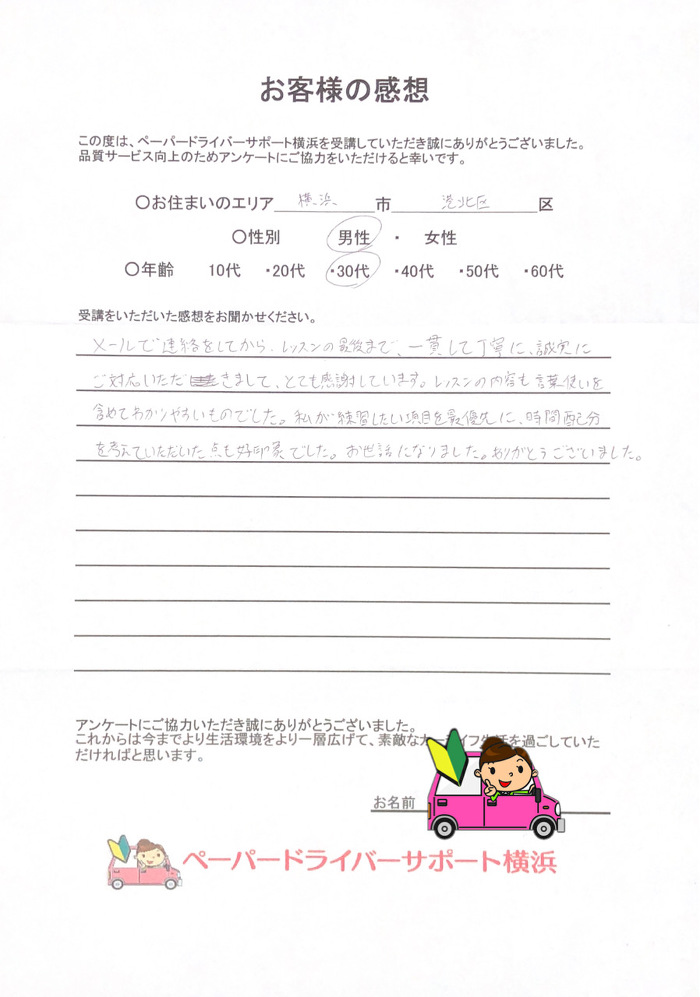 お客様の感想
この度は、ペーパードライバーサポート横浜を受講していただき誠にありがとうございました。
品質サービス向上のためアンケートにご協力をいただけると幸いです。
〇お住まいのエリア 横浜 市 港北区 区
〇性別 男性 ・ 女性
〇年齢 10代 ・20代 ・30代 ・40代 ・50代 ・60代
受講をいただいた感想をお聞かせください。
メールで連絡をしてから、レッスンの最後まで、一貫して丁寧に、誠実に
ご対応いただきまして、とても感謝しています。レッスンの内容も言葉使いを
含めてわかりやすいものでした。私が練習したい項目を最優先に、時間配分
を考えていただいた点も好印象でした。お世話になりました。ありがとうございました。
アンケートにご協力いただき誠にありがとうございました。
これからは今までより生活環境をより一層広げて、素敵なカーライフ生活を過ごしていた
だければと思います。
お名前
ペーパードライバーサポート横浜